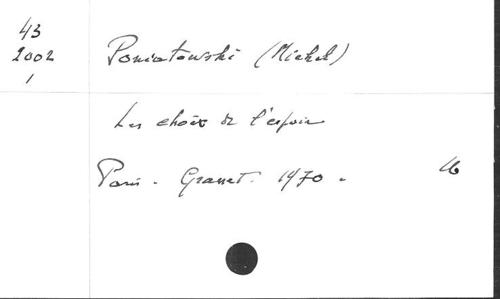 43
2002
1
Poniatowski (Michel)
Les choix de l'espoir
Paris - Grasset. 1970 -